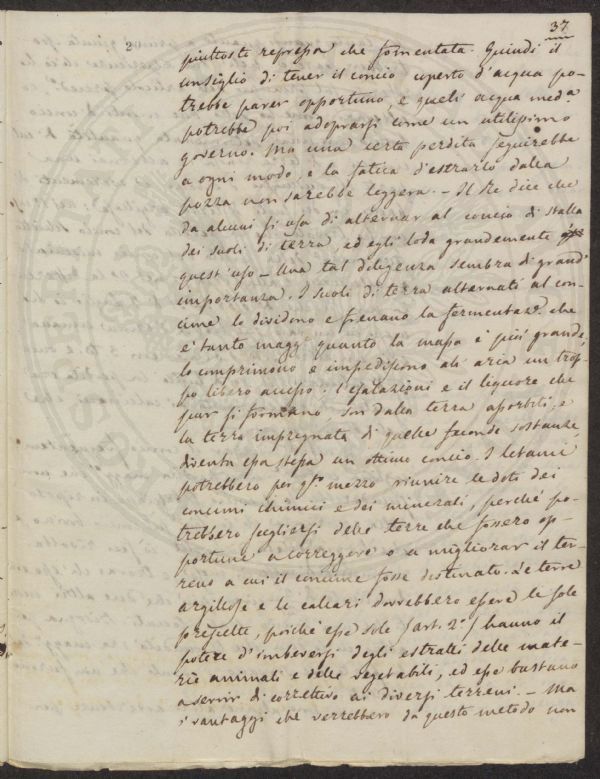 37
2
piuttosto repressa che fomentata. Quindi il
consiglio di tener il concio coperto d'acqua po-
trebbe parer opportuno, e quest'acqua med.a
potrebbe poi adoprarsi come un utilissimo
governo. Ma una certa perdita seguirebbe
a ogni modo, e la fatica d'estrarlo dalla
pozza non sarebbe leggera. - Il Re dice che
da alcuni si usa di alternar al concio di stalla
dei suoli di terra, ed egli loda grandemente
quest'uso - Una tal diligenza sembra di grand'
importanza. I suoli di terra alternati al con-
cime lo dividono e frenano la fermentaz.e che
e' tanto magg.e quanto la massa è più grande,
lo comprimono e impediscono all'aria un trop-
po libero accesso. L'esalazioni e il liquore che
pur si formano, son dalla terra assorbiti, e
la terra impregnata di quelle feconde sostanze,
diventa essa stessa un ottimo concio. I letami
potrebbero per q.to mezzo riunire le doti dei
concimi chimici e dei minerali, perché po-
trebbero scegliersi delle terre che fossero op-
portune a correggere o a migliorar il ter-
reno a cui il concime fosse destinato. Le terre
argillose e le calcari dovrebbero essere le sole
prescelte, poiché esse sole (art. 2°) hanno il
potere d'imbeversi degli estratti delle mate-
rie animali e delle vegetabili, ed esse bastano
a servir di correttivo ai diversi terreni. - Ma
i vantaggi che verrebbero da questo metodo non